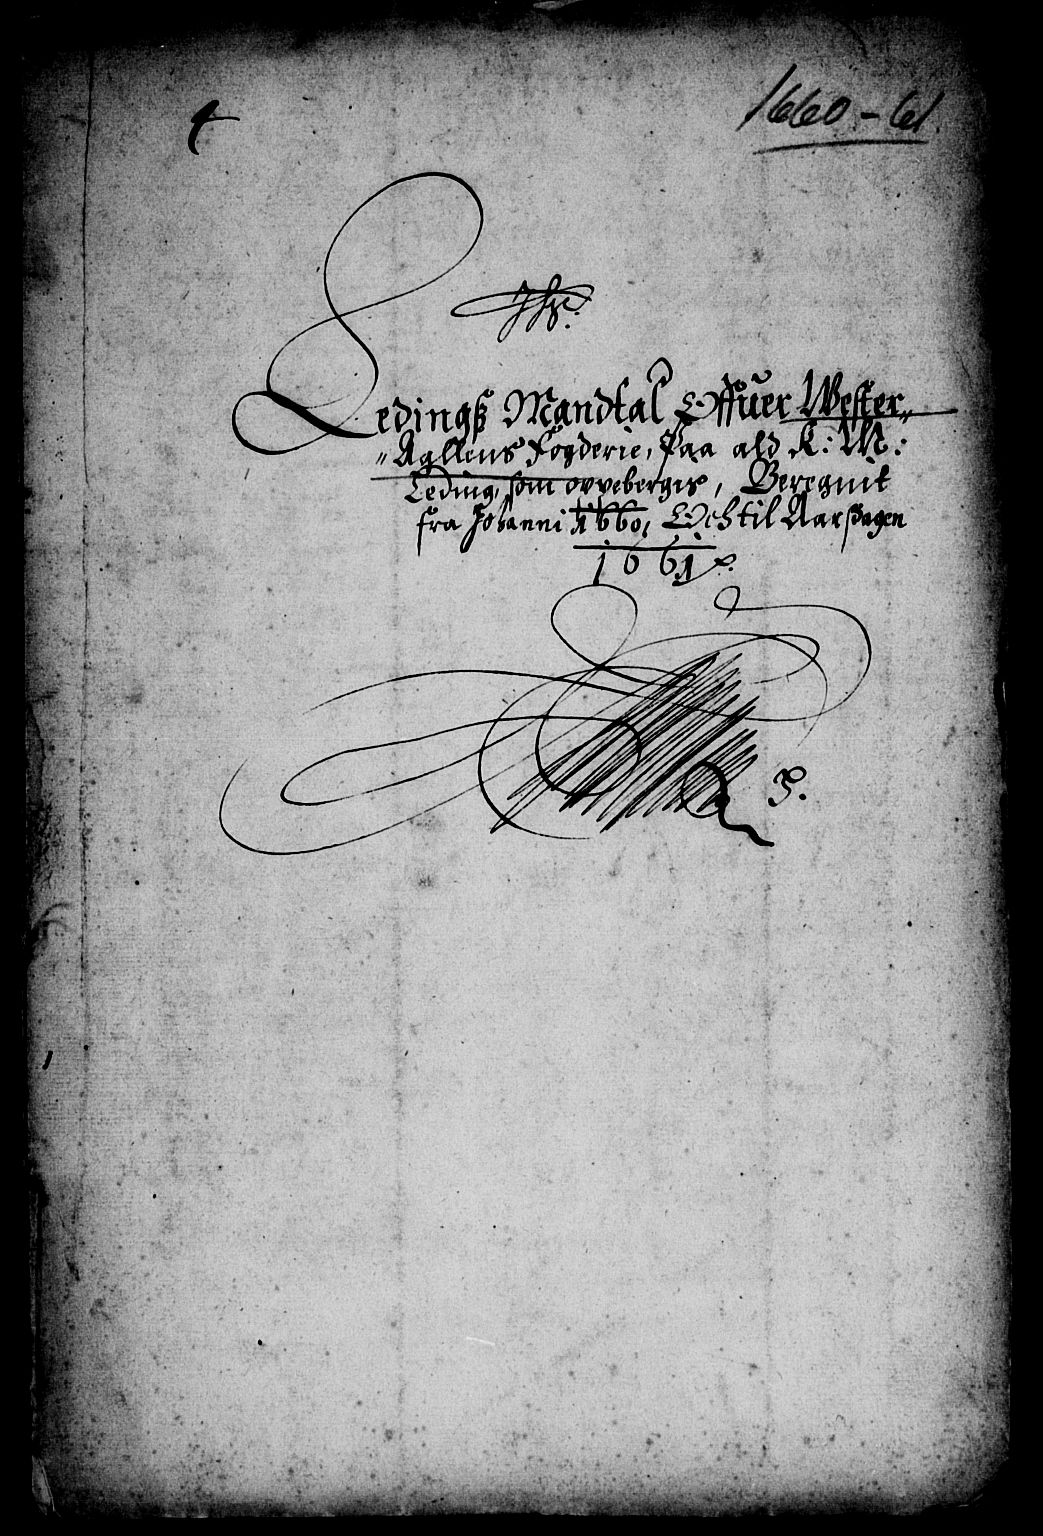 1660-61.
4
Jhs.
Ledingß Mandtal Offuer Wester-
Agllens Fogderie, Paa ald K: M:
Leding, som oppebergis, Beregnit
fra Johanni 1660, Och til Aarsdagen
1661.